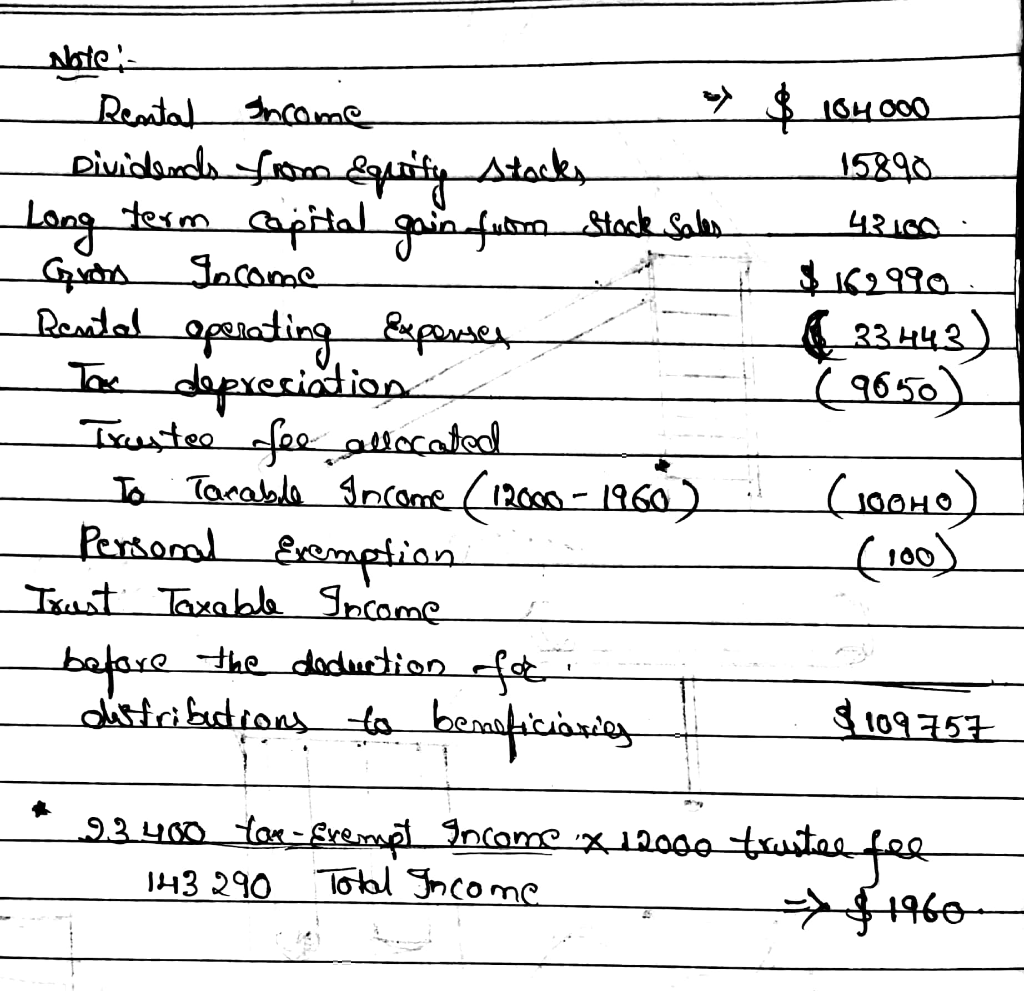 Note:-
Rental Income => $ 104000
Dividends from Equity Stocks 15890
Long term capital gain from Stock Sales 43100
Gross Income $ 162990
Rental operating Expenses ( 33443)
Tax depreciation (9650)
Trustee fee allocated
To Taxable Income (12000 - 1960)* (10040)
Personal Exemption (100)
Trust Taxable Income
before the deduction for
distributions to beneficiaries $109757
* 23400 tax-Exempt Income x 12000 trustee fee
143290 Total Income => $ 1960